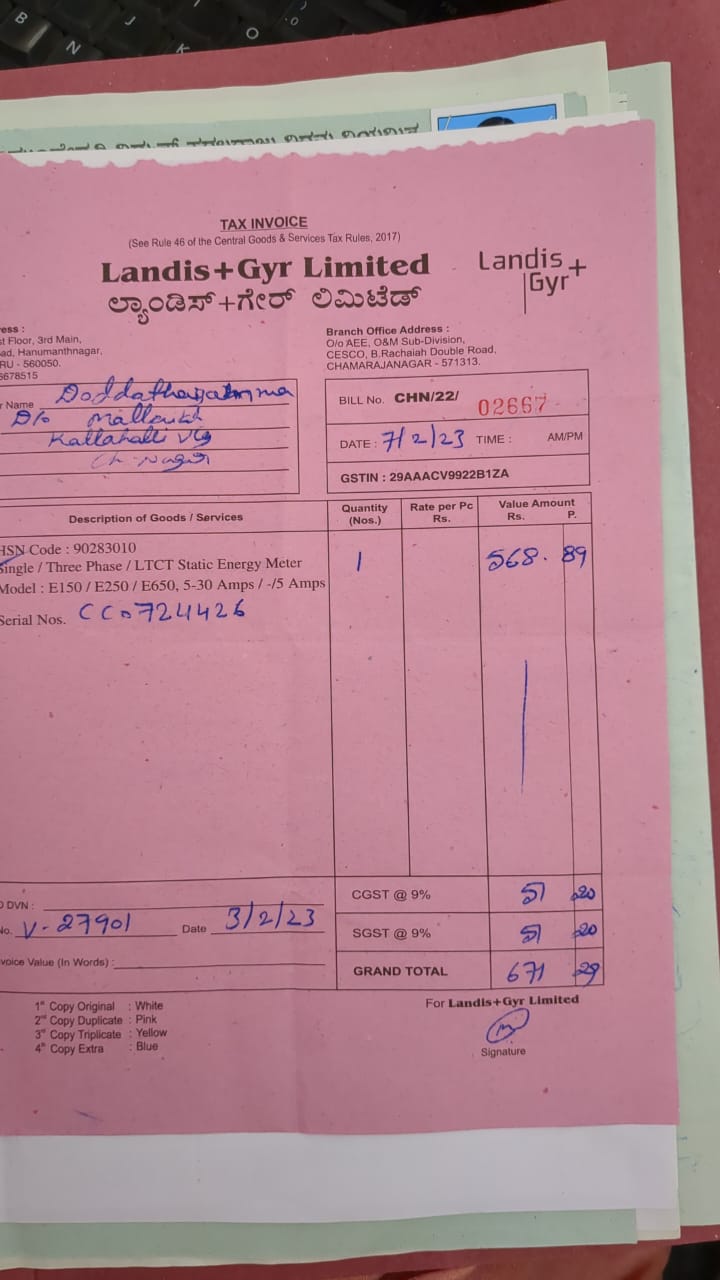 B
N
J
K
O
TAX INVOICE
(See Rule 46 of the Central Goods & Services Tax Rules, 2017)
Landis+Gyr Limited
ಲ್ಯಾಂಡಿಸ್+ಗೇರ್ ಲಿಮಿಟೆಡ್
Landis+
Gyr
ess :
st Floor, 3rd Main,
ad, Hanumanthnagar,
RU - 560050.
6678515
Branch Office Address :
O/o AEE, O&M Sub-Division,
CESCO, B.Rachaiah Double Road,
CHAMARAJANAGAR - 571313.
r Name Doddathayamma
D/o Mallaiah
Kallahalli Vlg
Ch-Nagar
BILL No. CHN/22/ 02667
DATE : 7/2/23 TIME : AM/PM
GSTIN : 29AAACV9922B1ZA
Description of Goods / Services
Quantity (Nos.)
Rate per Pc Rs.
Value Amount Rs. P.
HSN Code : 90283010
Single / Three Phase / LTCT Static Energy Meter 1 568. 89
Model : E150 / E250 / E650, 5-30 Amps / -/5 Amps
Serial Nos. CC0724426
CGST @ 9% 51 20
SGST @ 9% 51 20
GRAND TOTAL 671 29
O DVN :
No. V-27901 Date 3/2/23
voice Value (In Words) :
1st Copy Original : White
2nd Copy Duplicate : Pink
3rd Copy Triplicate : Yellow
4th Copy Extra : Blue
For Landis+Gyr Limited
Signature